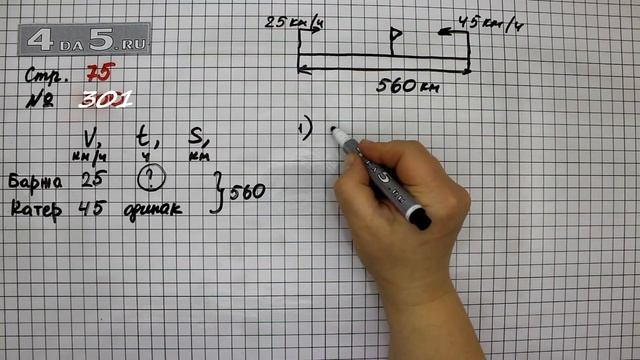 4DA5.RU
Стр. 75
№ 301
25 км/ч 45 км/ч
560 км
V, t, S,
км/ч ч км
Баржа 25 ?
Катер 45 одинак
560
1)